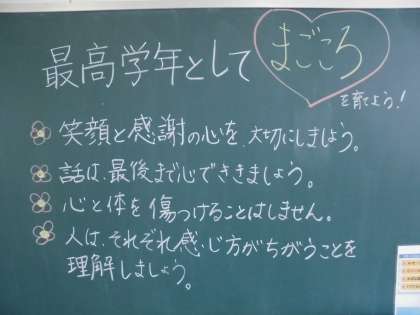 最高学年として
まごころ
を育てよう!
笑顔と感謝の心を、大切にしましょう。
話は、最後まで心でききましょう。
心と体を傷つけることはしません。
人は、それぞれ感じ方がちがうことを
理解しましょう。